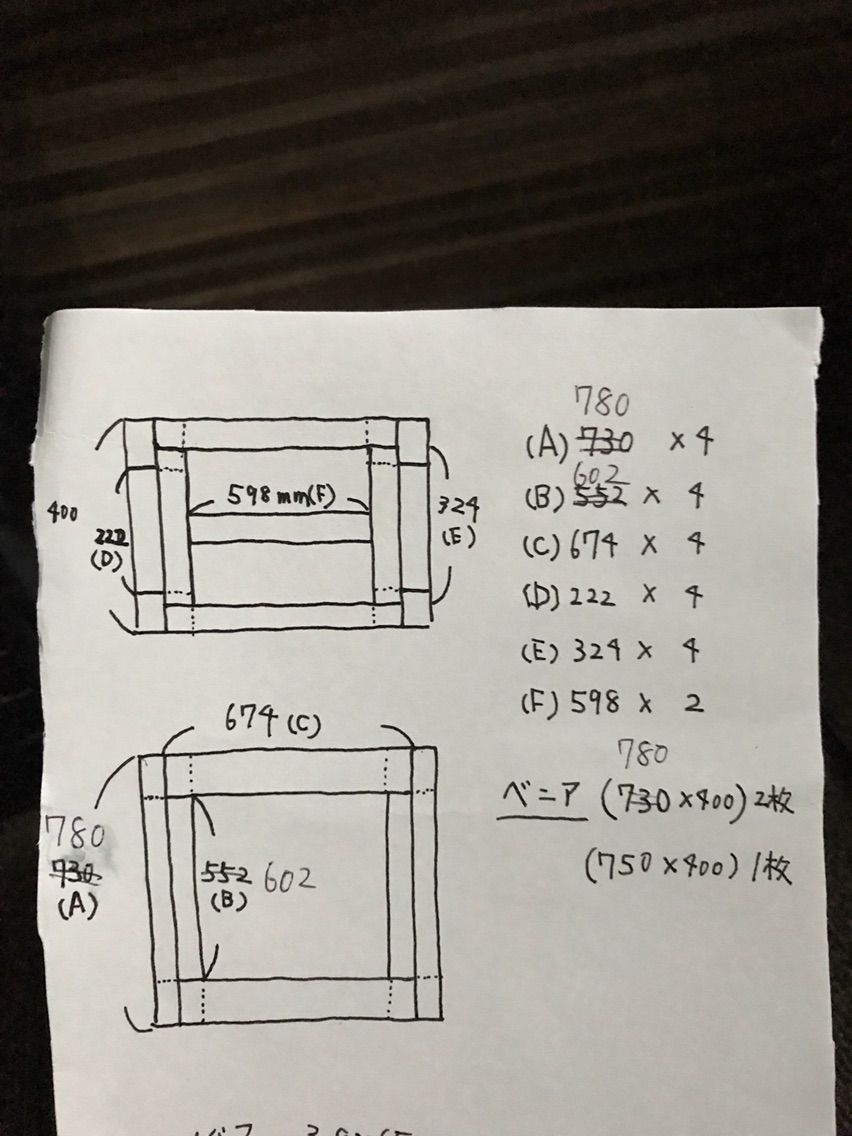 400
222
(D)
598mm(F)
324
(E)
780
(A) 730 × 4
602
(B) 552 × 4
(C) 674 × 4
(D) 222 × 4
(E) 324 × 4
(F) 598 × 2
674 (C)
780
730
(A)
552 602
(B)
780
ベニア (730×400) 2枚
(750×400) 1枚